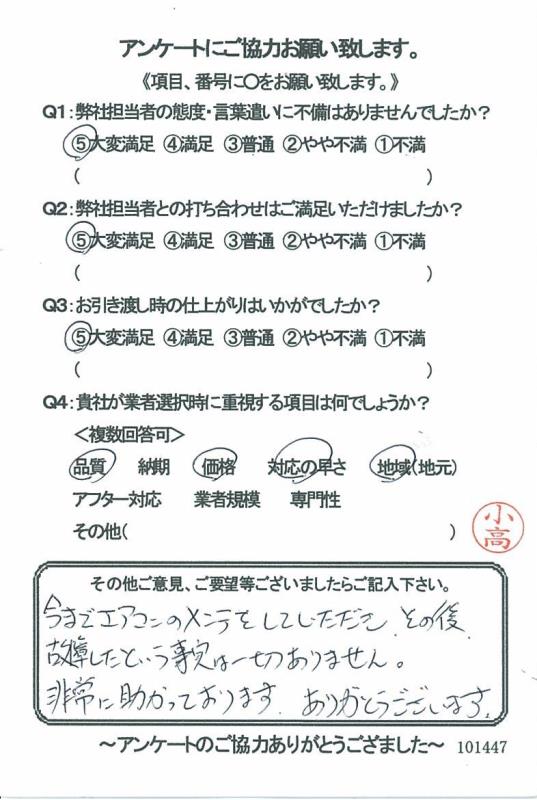 アンケートにご協力お願い致します。
《項目、番号に〇をお願い致します。》
Q1:弊社担当者の態度・言葉遣いに不備はありませんでしたか?
⑤大変満足 ④満足 ③普通 ②やや不満 ①不満
( )
Q2:弊社担当者との打ち合わせはご満足いただけましたか?
⑤大変満足 ④満足 ③普通 ②やや不満 ①不満
( )
Q3:お引き渡し時の仕上がりはいかがでしたか?
⑤大変満足 ④満足 ③普通 ②やや不満 ①不満
( )
Q4:貴社が業者選択時に重視する項目は何でしょうか?
<複数回答可>
品質 納期 価格 対応の早さ 地域(地元)
アフター対応 業者規模 専門性
その他( )
小高
その他ご意見、ご要望等ございましたらご記入下さい。
今までエアコンのメンテをしていただき その後
故障したという事実は一切ありません。
非常に助かっております。ありがとうございます。
~アンケートのご協力ありがとうござました~ 101447